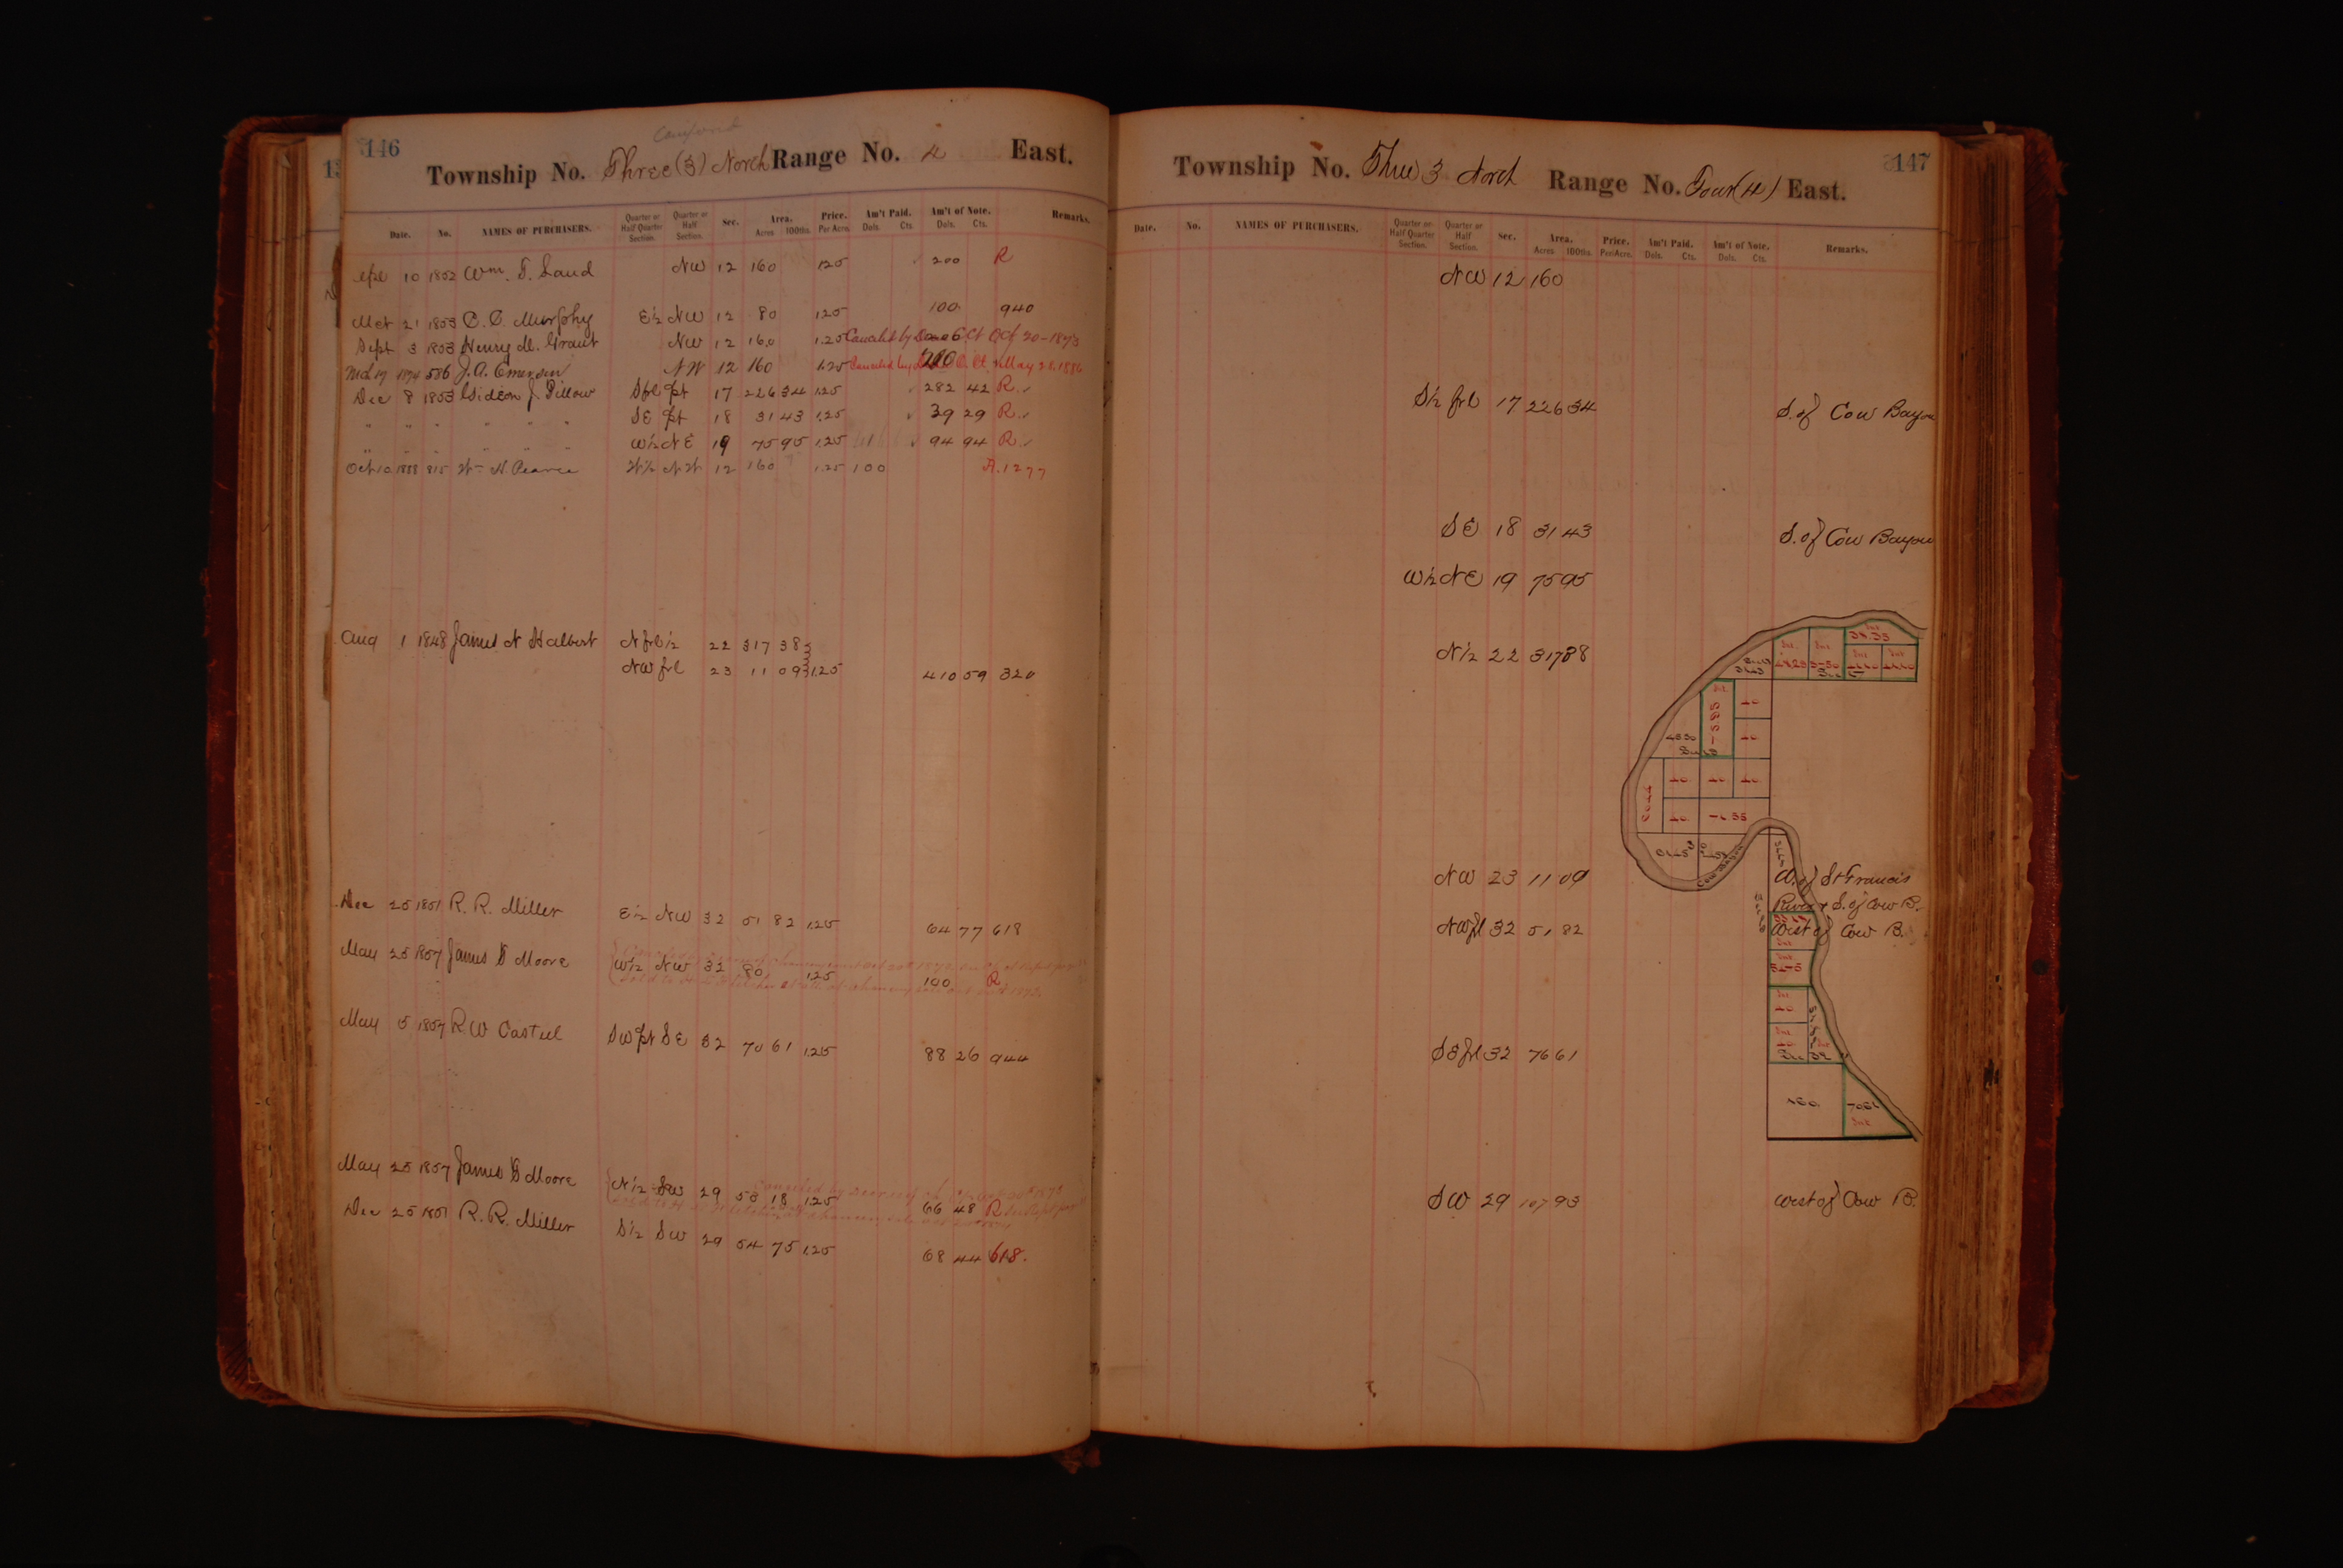 146
Township No. Three (3) North Range No. 4 East.
Date. No. NAMES OF PURCHASERS. Quarter or Half Quarter Section. Quarter or Half Section. Sec. Area. Acres 100ths. Price. Per Acre. Am't Paid. Dols. Cts. Am't of Note. Dols. Cts. Remarks.
10 1852 Wm. F. Land NW 12 160 1.25 200 R
21 1853 C. C. Murphy E½ NW 12 80 1.25 100 940
Sept 3 1853 Henry M. Grant NW 12 160 1.25 Ct Oct 20-1873
Mch 19 586 J. A. Emerson NW 12 160 1.25 Canceled by Ct. May 28, 1886
Dec 8 1853 Gideon J Pillow Sfrl pt 17 226 34 1.25 282 42 R
" " " " " " SE pt 18 31 43 1.25 39 29 R
W½ NE 19 75 95 1.25 94 94 R
Oct 10 1888 815 Wm H. Pearce W½ NW 12 160 1.25 100 A. 1277
Aug 1 1848 James N Halbert N frl ½ 22 317 38
NW frl 23 11 09 1.25 410 59 320
Dec 25 1851 R. R. Miller E½ NW 32 51 82 1.25 64 77 618
May 25 1857 James S Moore W½ NW 32 80 1.25 100 R
May 5 1857 R W Casteel SW pt SE 32 70 61 1.25 88 26 944
May 25 1857 James S Moore N½ SW 29 53 18 1.25 66 48 R
Dec 25 1851 R. R. Miller S½ SW 29 54 75 1.25 68 44 618.
147
Township No. Three 3 North Range No. Four (4) East.
Date. No. NAMES OF PURCHASERS. Quarter or Half Quarter Section. Quarter or Half Section. Sec. Area. Acres 100ths. Price. Per Acre. Am't Paid. Dols. Cts. Am't of Note. Dols. Cts. Remarks.
NW 12 160
S½ frl 17 226 34 S. of Cow Bayou
SE 18 31 43 S. of Cow Bayou
W½ NE 19 75 95
N½ 22 317 38
38.35
40
40
40 40 40
40
Cow Bayou
NW 23 11 09 W. of St Francis
River & S. of Cow B.
NW frl 32 51 82 West of Cow B.
40
40
SE frl 32 76 61
160 70.61
SW 29 107 93 West of Cow B.